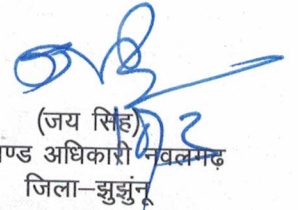 (जय सिंह)
ण्ड अधिकारी नवलगढ़
जिला–झुझुंनू